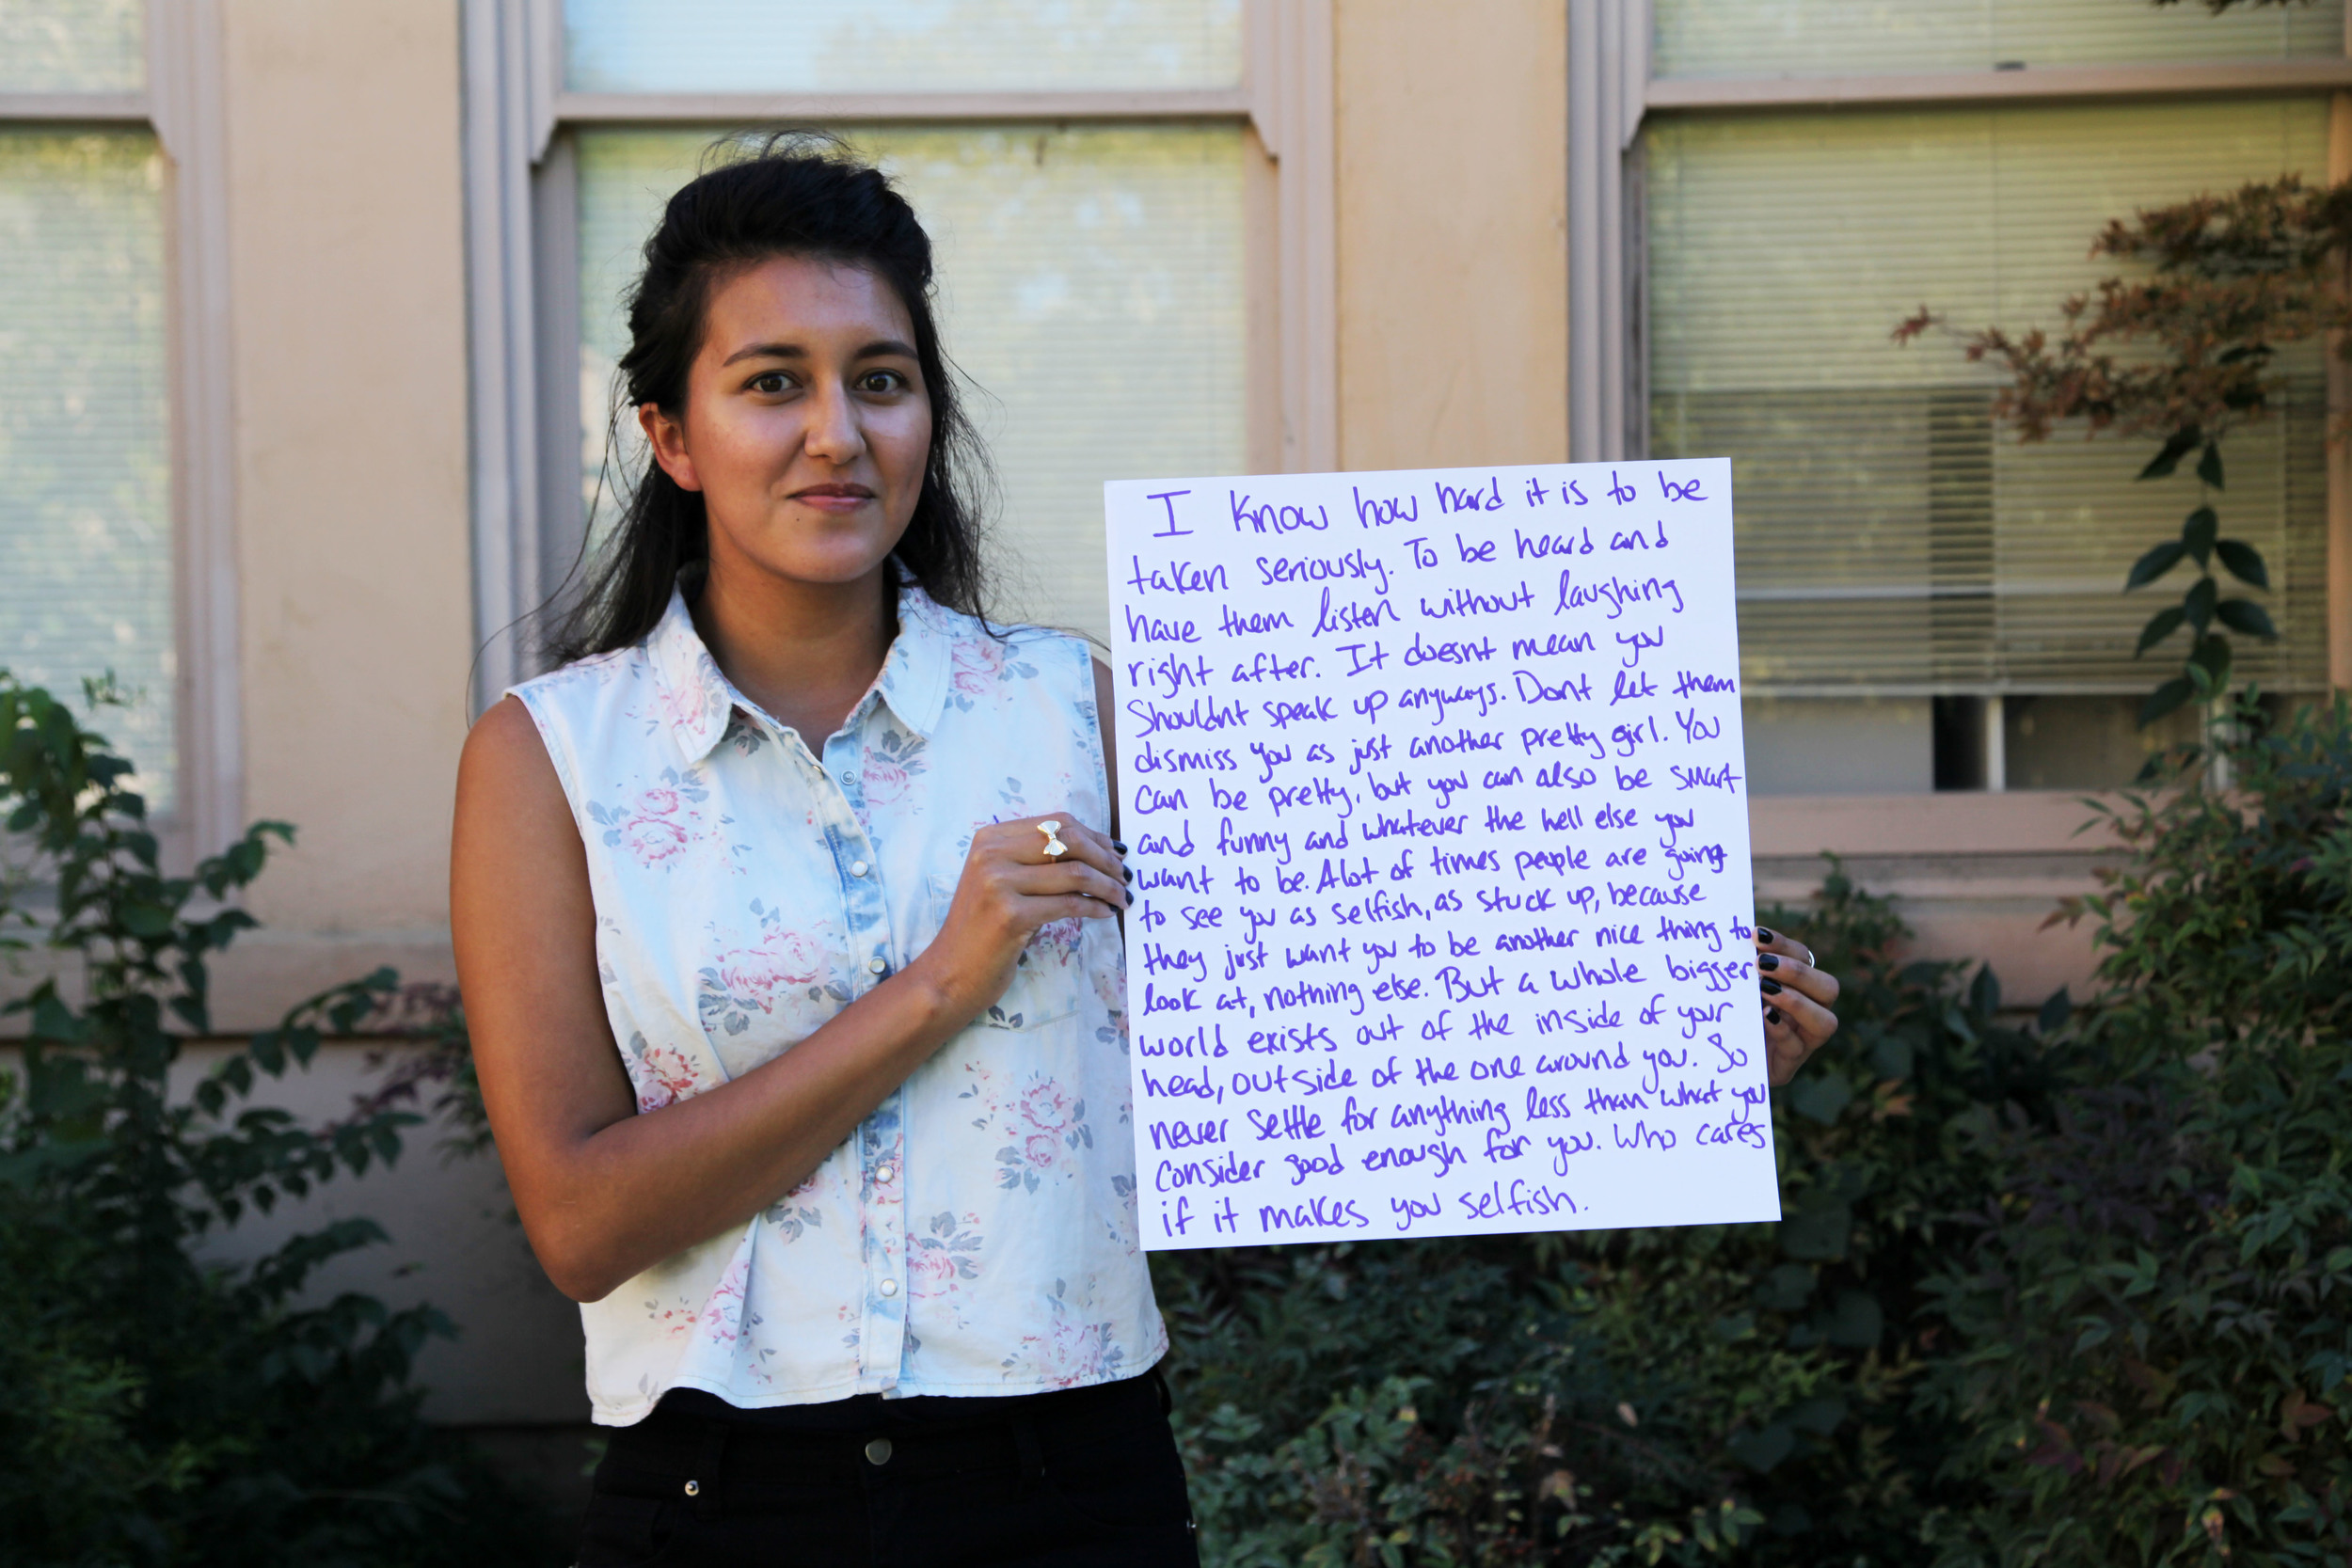 I know how hard it is to be
taken seriously. To be heard and
have them listen without laughing
right after. It doesnt mean you
Shouldnt speak up anyways. Dont let them
dismiss you as just another pretty girl. You
can be pretty, but you can also be smart
and funny and whatever the hell else you
want to be. Alot of times people are going
to see you as selfish, as stuck up, because
they just want you to be another nice thing to
look at, nothing else. But a whole bigger
world exists out of the inside of your
head, outside of the one around you. So
never settle for anything less than what you
consider good enough for you. Who cares
if it makes you selfish.